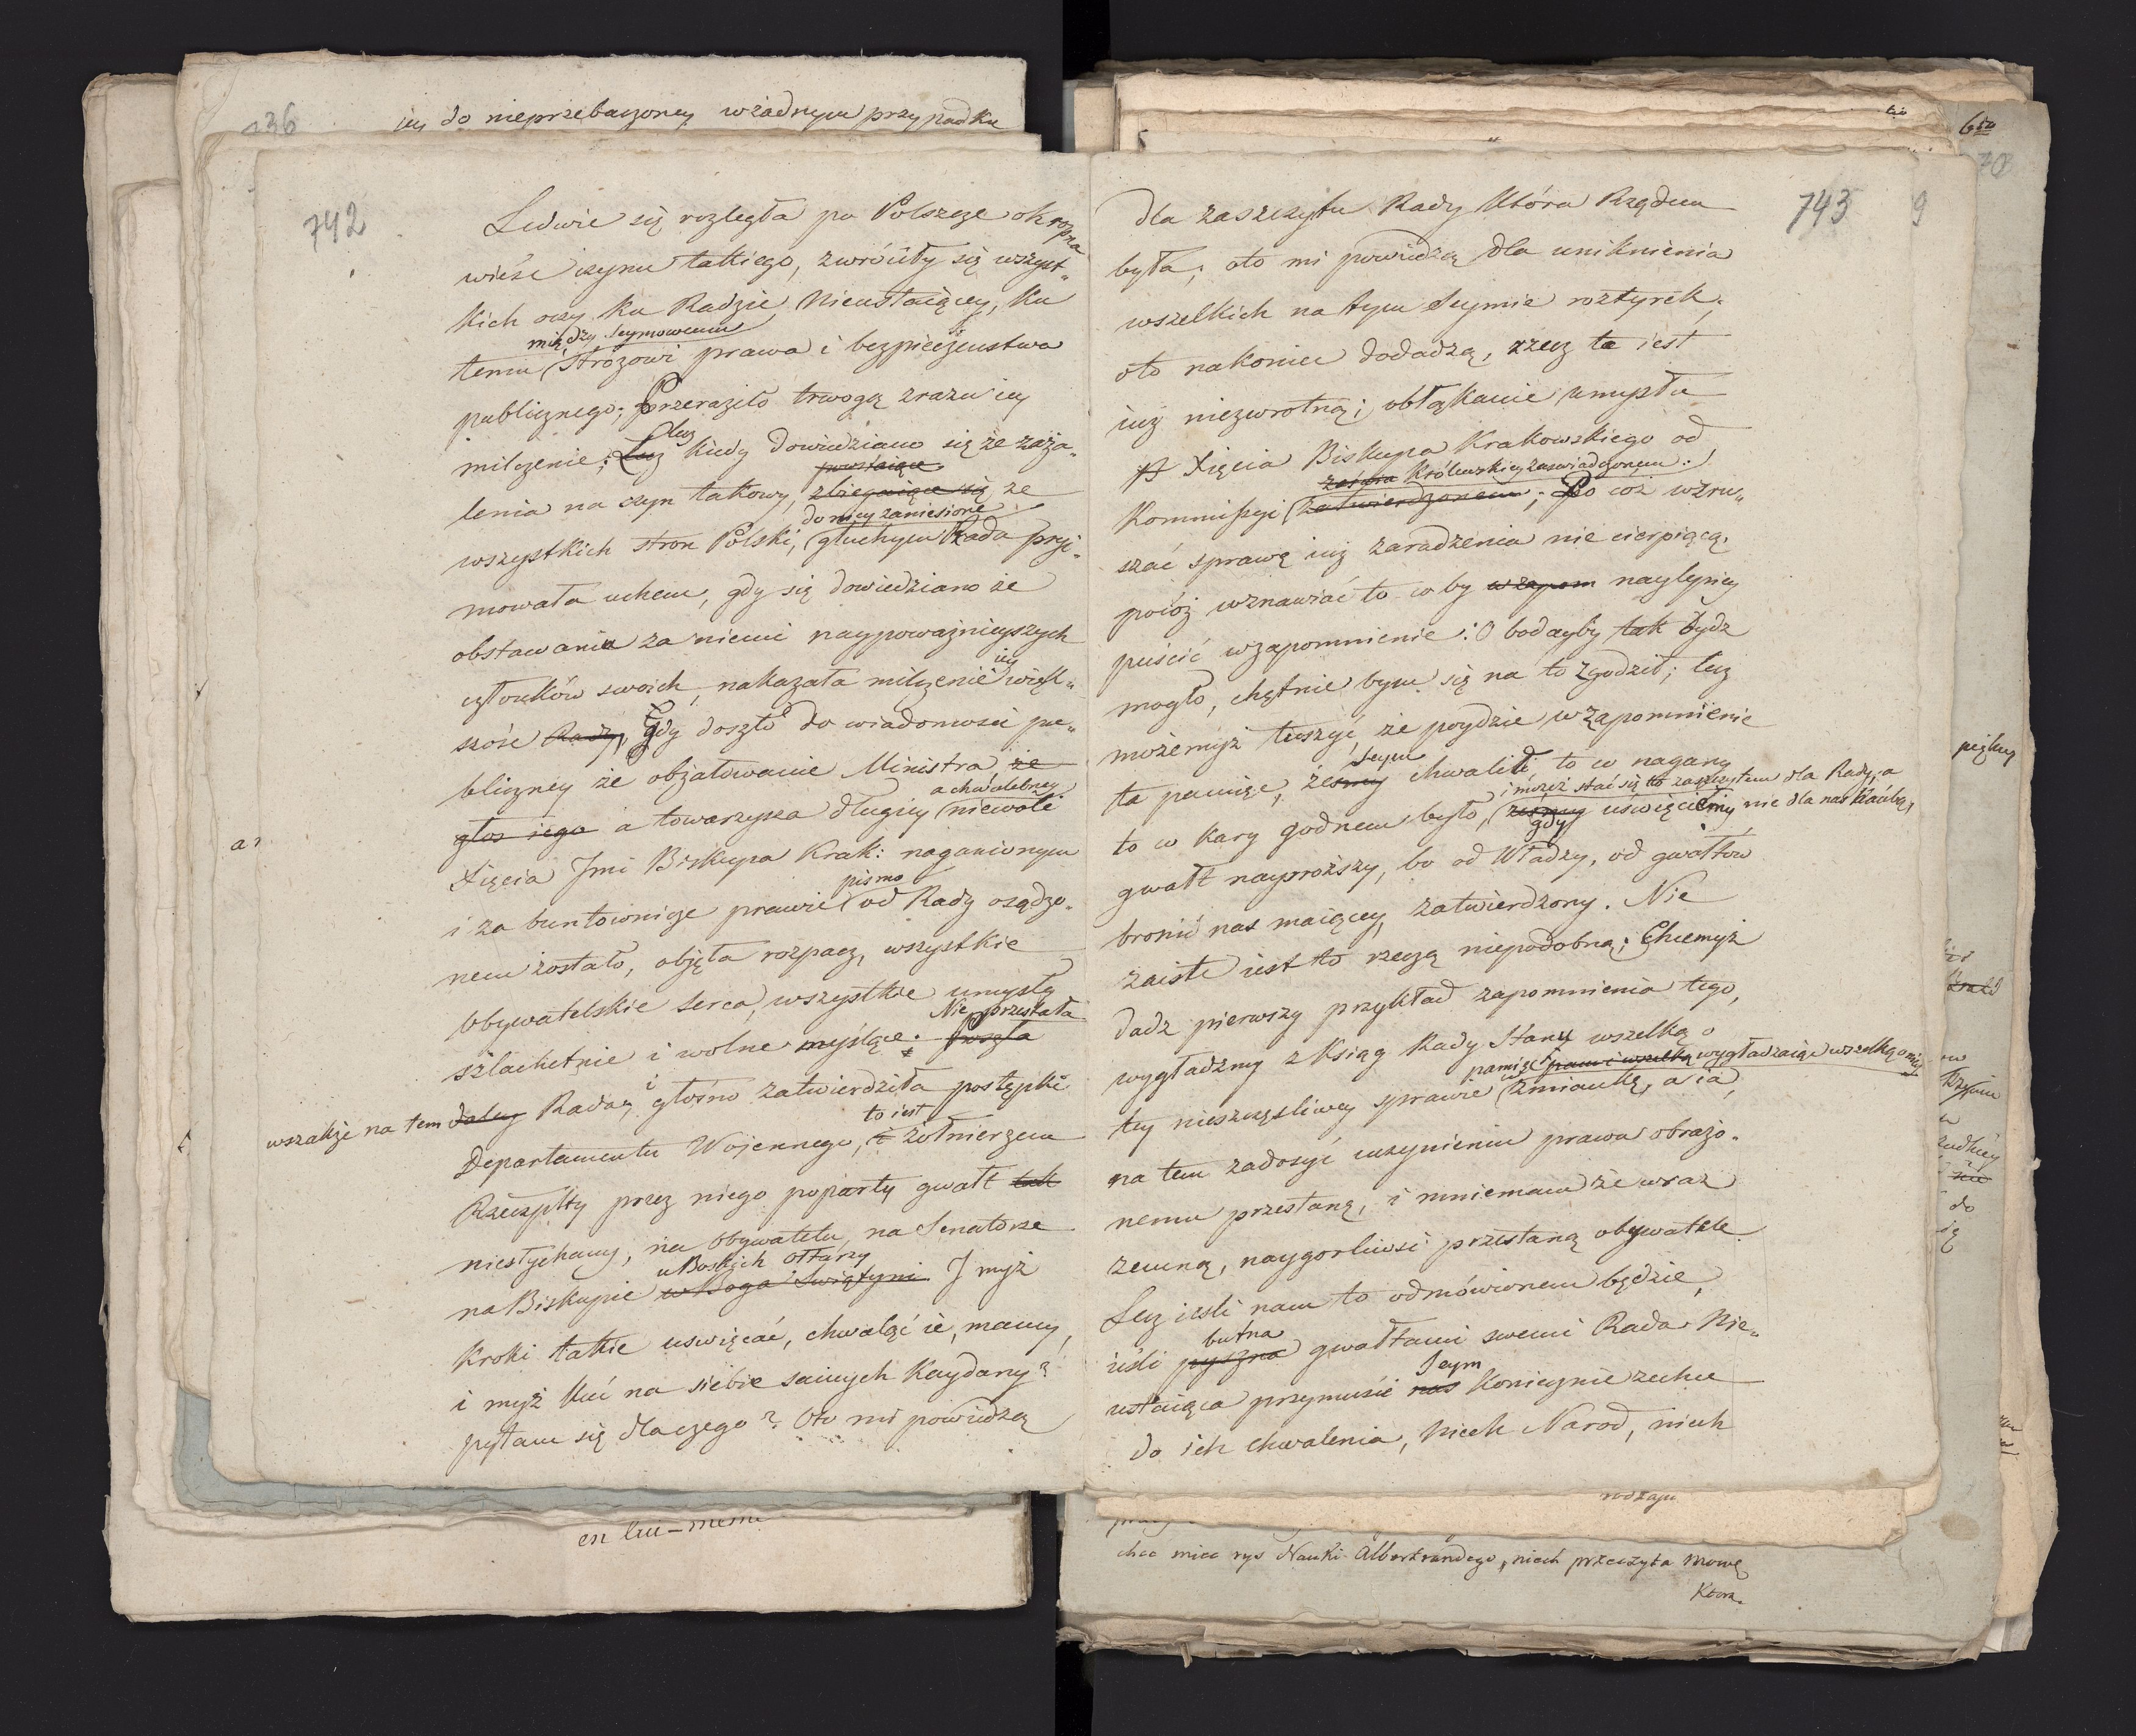 136
iey do nieprzebaczoney wżadnym przypadku
742
Ledwie się rozległa po Polszcze okropna
wieść czynu takiego, zwróciły się wszyst„
kich oczy ku Radzie Nieustaiącey, ku
między Seymowemu
temu stróżowi prawa i bezpieczeństwa
publicznego; Przeraziło trwogą zrazu iey
milczenie; Lecz lecz kiedy dowiedziano się że zaża„
powstaiące
lenia na czyn takowy, zbiegaiące się ze
do niey zaniesione
wszystkich stron Polski, głuchym Rada przy„
mowała uchem, gdy się dowiedziano że
obstawania za niemi naypoważnieyszych
członków swoich, nakazała milczenie iey więk„
szość Rady, Gdy doszło do wiadomości pu„
bliczney że obżałowanie Ministra że
głos iego a towarzysza długiey a chwalebney niewoli
Xięcia Jmi Biskupa Krak: naganionym
i za buntownicze prawie pismo od Rady osądzo„
nem zostało, objęła rozpacz, wszystkie
obywatelskie serca, wszystkie umysły
szlachetnie i wolne myślące. Poszła Nie przestała
wszakże na tem daley Rada, i głośno zatwierdziła postępki
Departamentu Wojennego, i to iest żołnierzem
Rzeczpltey przez niego poparty gwałt tak
niesłychany, na Obywatelu, na Senatorze
na Biskupie w Boga Świątyni u Boskich ołtarzy I myż
kroki takie uswięcać, chwalić ie, mamy,
i myż kuć na siebie samych Kaydany?
pytam się dlaczego? Oto mi powiedzą
en lui-meme
743
9
dla zaszczytu Rady która Rządem
była; oto mi powiedzą dla uniknienia
wszelkich na tym Seymie roztyrek;
oto nakoniec dodadzą, rzecz ta iest
iuż niezwrotną; obłąkanie umysłu
Xięcia Biskupa Krakowskiego od
Królewskiey zaswiadczonem:
Kommissyi zatwierdzonem; Po coż wzru„
szać sprawę iuż zaradzenia nie cierpiącą,
pocóż wznawiać to co by w zapom naylepiey
puścić wzapomnienie: O bodayby tak bydz
mogło, chętnie bym się na to zgodził; lecz
możemyż tuszyć, że poydzie w zapomnienie
ta pamięć, żesmy Seym chwalili to co nagany
i możeż stać się to zaszczytem dla Rady, a
to co kary godnem było, żesmy gdy uświęciemy nie dla nas hańbą,
gwałt naysroższy, bo od Władzy, od gwałtów
bronić nas maiącey, zatwierdzony. Nie
zaiste iest to rzeczą niepodobną; Chcemyż
dadz pierwszy przykład zapomnienia tego,
wygładźmy z Ksiąg Rady Stanu wszelką o
pamięć wygładzaiąc wszelką o niey
tey nieszczęśliwey sprawie zmiankę, a ia,
na tem zadosyć uczynieniu prawu obrażo„
nemu przestanę, i mniemam że wraz
zemną, naygorliwsi przestaną obywatele
Lecz iesli nam to odmówionem będzie,
ieśli pyszna butna gwałtami swemi Rada Nie„
ustaiąca przymusić nas Seym koniecznie zechce
do ich chwalenia, niech Narod, niech
chce miec rys Nauki Albertrandego, niech przeczyta mowę
Ktora.